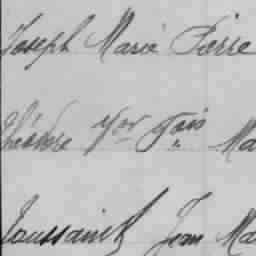 Joseph Marie Pierre
Théodore Yves fois „ Ma
Toussaint Jean Ma